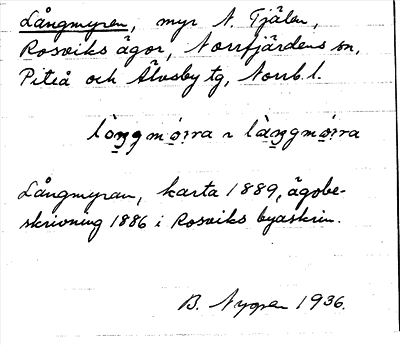 Långmyren, myr N. Tjälen,
Rosviks ägor, Norrfjärdens sn,
Piteå och Älvsby tg, Norrb. l.
Långmyran, karta 1889, ägobe-
skrivning 1886 i Rosviks byaskrin.
B. Nygren 1936.